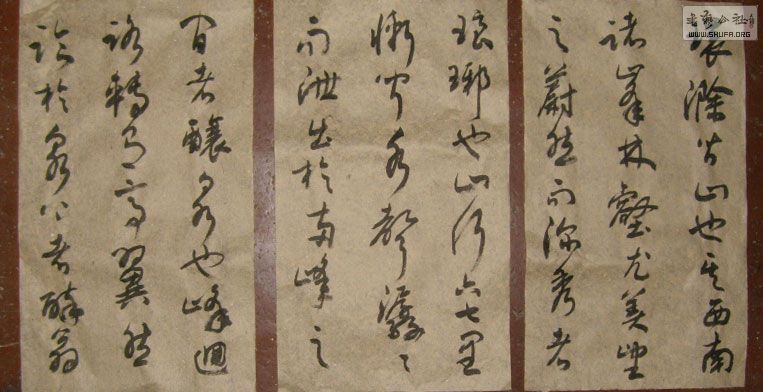 環滁皆山也其西南
諸峯林壑尤美望
之蔚然而深秀者
琅琊也山行六七里
漸聞水聲潺〻
而泄出於兩峰之
間者釀泉也峰迴
路轉有亭翼然
臨於泉上者醉翁
书艺公社
WWW.SHUFA.ORG